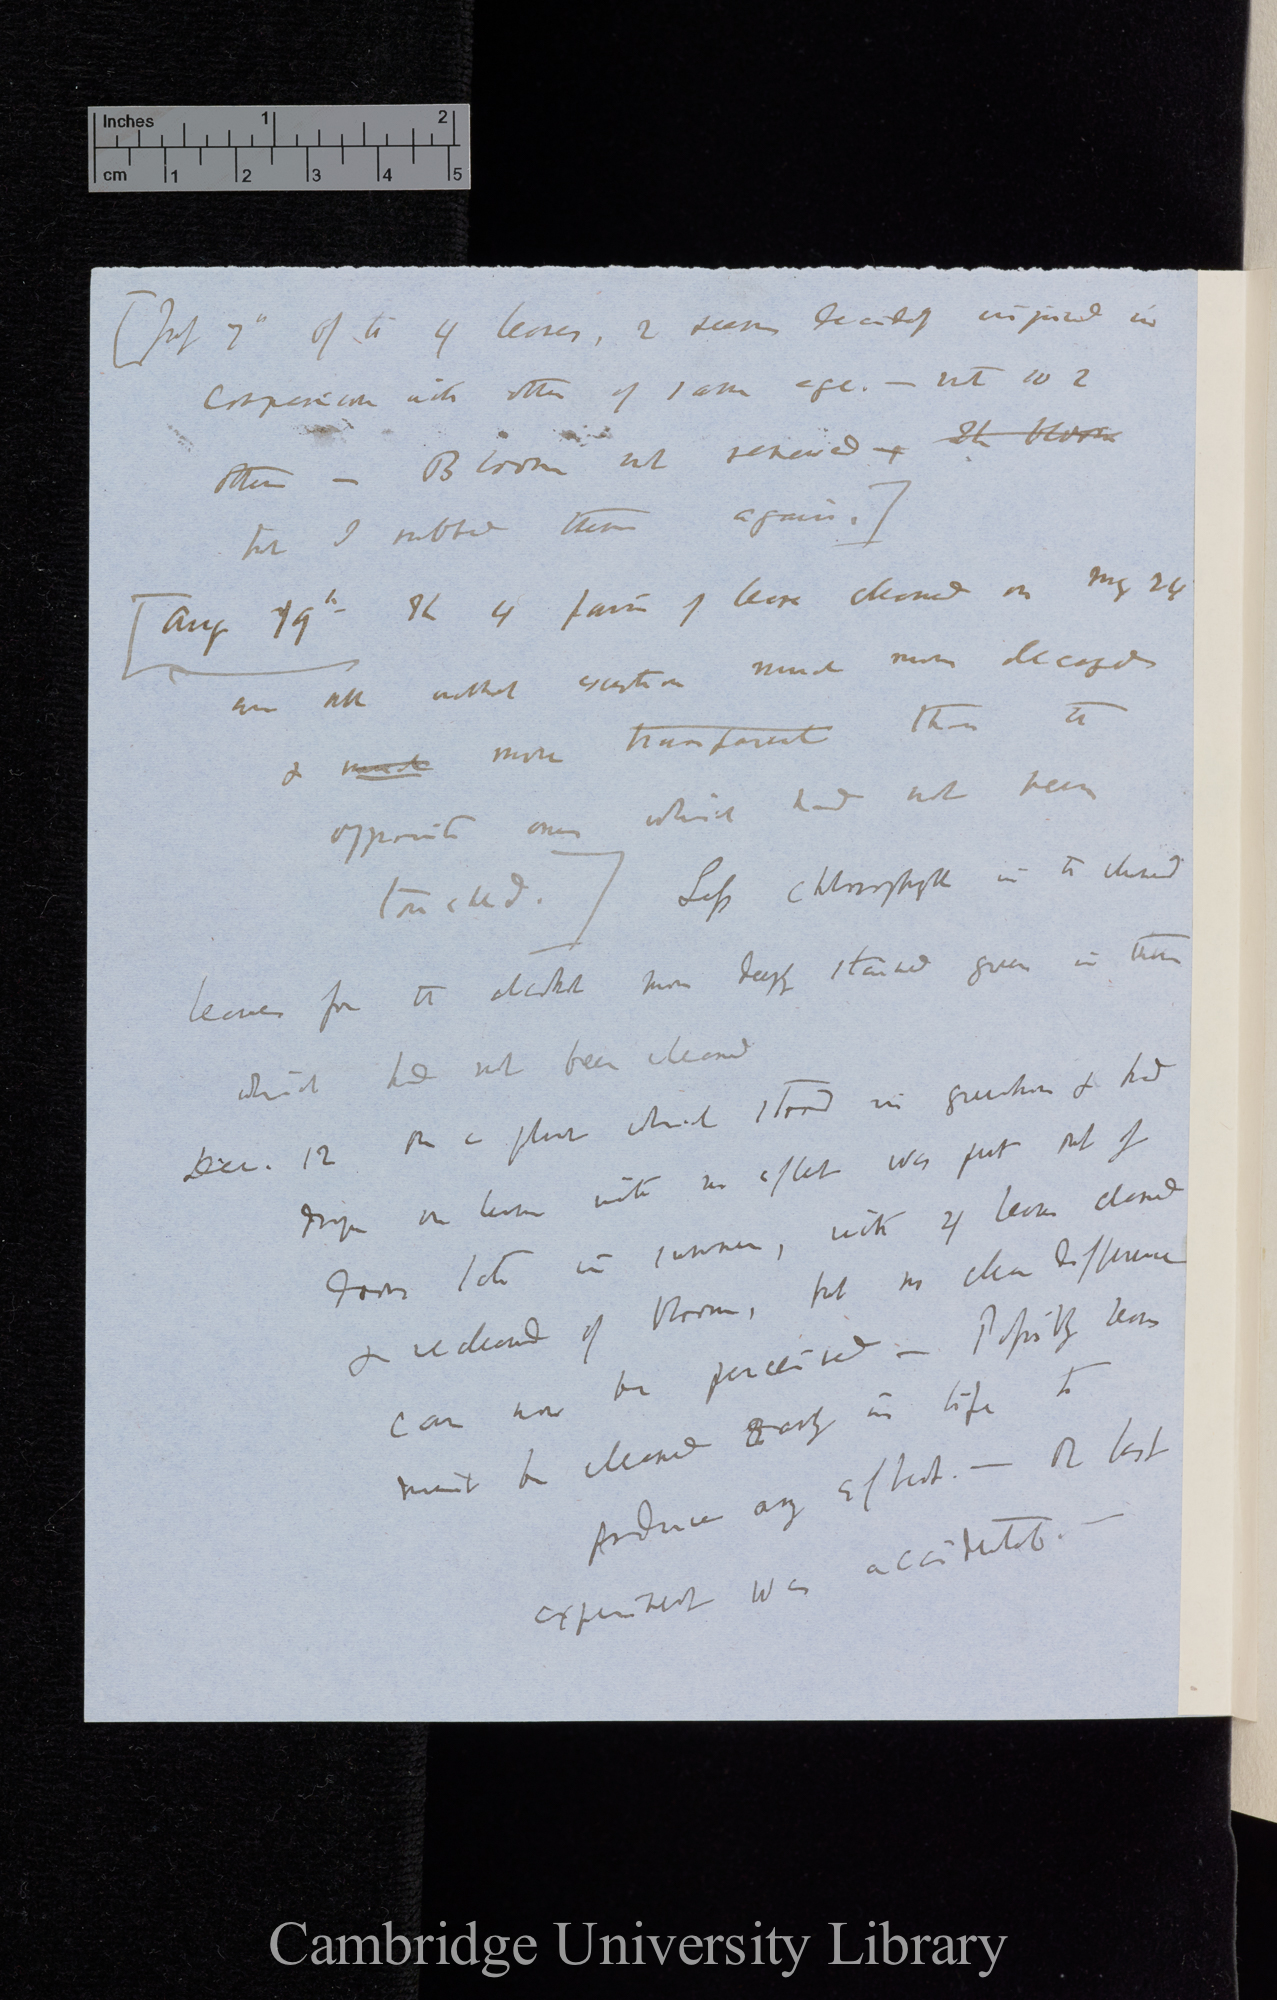 Inches 1 2
cm 1 2 3 4 5
[July 7th of the 4 leaves, 2 seems decidedly injured in
comparison with others of same age. — not so 2
others — Bloom not renewed + The bloom
but I rubbed them again.]
[Aug 19th The 4 pairs of leaves cleaned on May 24
are all without exception much more decayed
& much more transparent than the
opposite ones which had not been
touched.] Less chlorophyll in the cleaned
leaves for the alcohol more deeply stained green in them
which had not been cleaned
Dec. 12 On a plant which stood in greenhouse & had
drops on leaves with no effect was put out of
doors late in summer, with 4 leaves cleaned
& recleaned of bloom, but no clear difference
can now be perceived — Possibly leaves
must be cleaned early in life to
produce any effect. — Or last
experiment was accidental. —
Cambridge University Library